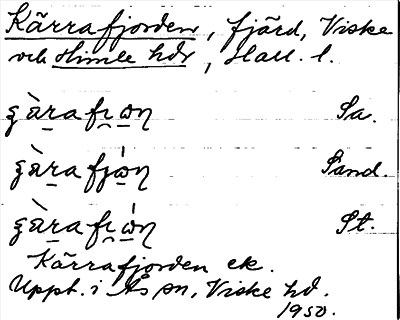 Kärrafjorden, fjärd, Viske
och Himle hdr, Hall. l.
ʂàra fi̯ω̣n Sa.
ʂàra fjώ̣n Sand.
ʂàra fi̯ώ̣n St.
Kärrafjorden ek.
Uppt. i Ås sn, Viske hd.
1950.